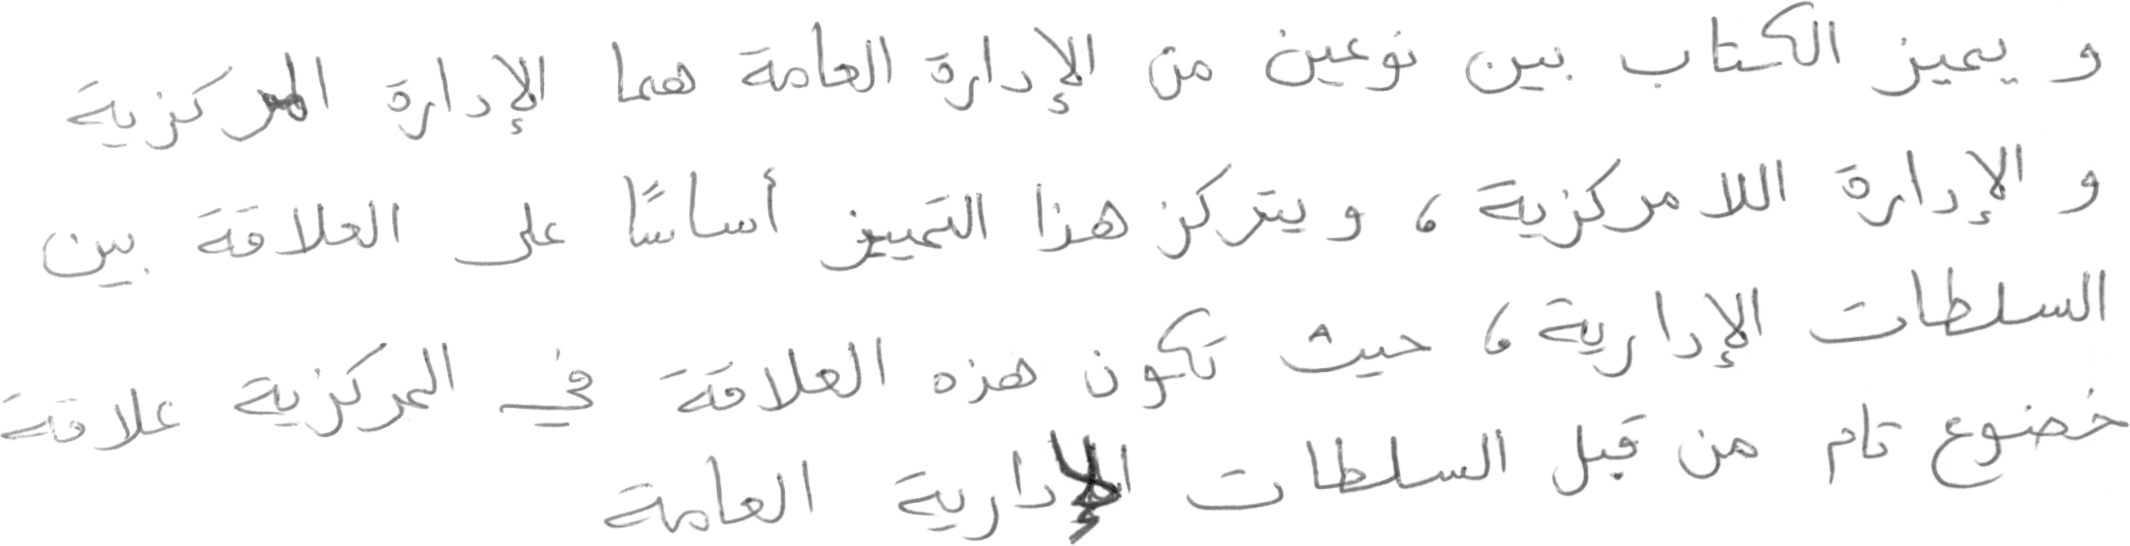 و يميز الكتاب بين نوعين من الإدارة العامة هما الإدارة المركزية
و الإدارة اللامركزية ، ويتركز هذا التمييز أساسًا على العلاقة بين
السلطات الإدارية ، حيث تكون هذه العلاقة في المركزية علاقة
خضوع تام من قبل السلطات الإدارية العامة